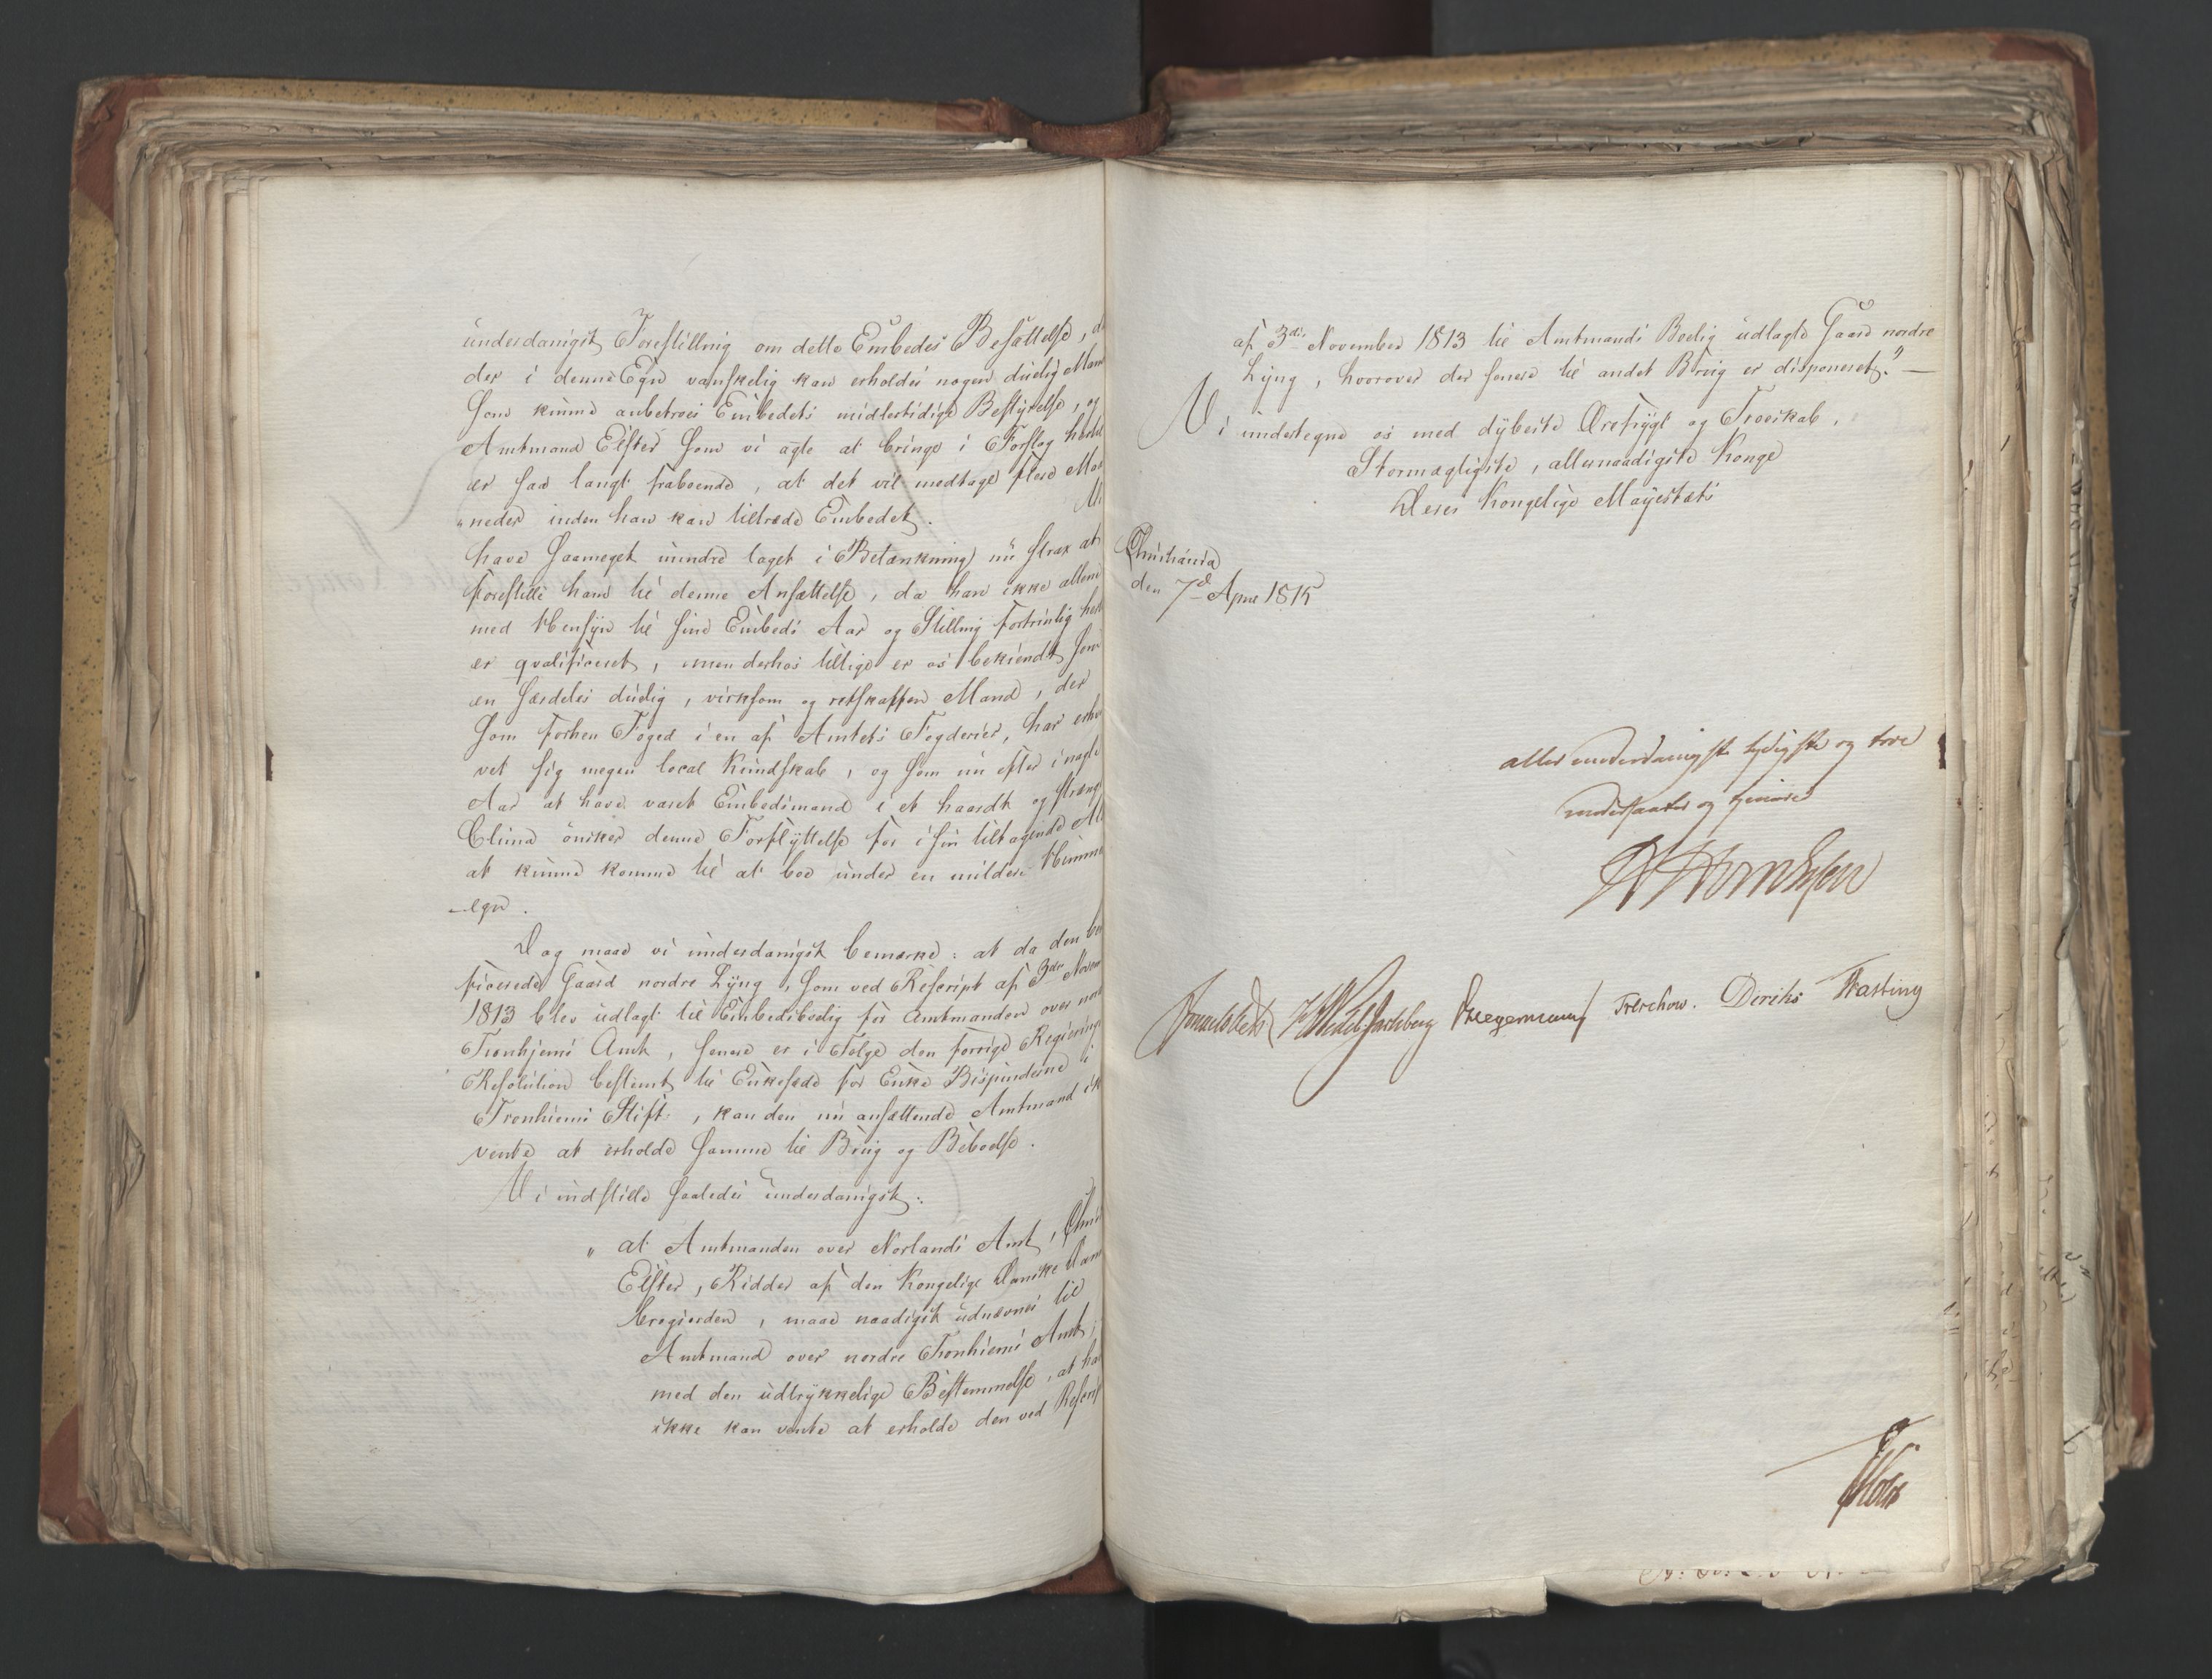 underdanigst Forestilling om dette Embedes Besættelse, d
der i denne Egn vanskelig kan erholdes nogen duelig Man
som kunne anbetroes Embedets midlertidige Bestyrelse, og
Amtmand Elster som vi agte at bringe i Forslag
er saa langt fraboende, at det vil medtage flere Mo
neder inden han kan tiltræde Embedet.
have saameget mindre taget i Betænkning nu strax at
forestille ham til denne Ansættelse, da han ikke allene
med Hensyn til sine Embeds Aar og Stilling fortrinlig
er qvalificeret, men derhos tillige er os bekiendt som
en særdeles duelig, virksom og retskaffen Mand, der
som forhen Foged i en af Amtets Fogderier, har erhv
vet sig megen local Kundskab, og som nu efter i nogle
Aar at have været Embedsmand i et haardt og strængt
Clima ønsker denne Forflyttelse for i sin tiltagende Al
at kunne komme til at boe under en mildere Himme
-egn.
Dog maae vi underdanigst bemærke: at da den be
ficerede Gaard nordre Lyng, som ved Rescript af 3die Novem
1813 blev udlagt til Embedsbolig for Amtmanden over nord
Tronhjems Amt, senere er i Følge den forrige Regierings
Resolution bestemt til Enkesæde for Enke Bispinderne i
Tronhiems Stift, kan den nu ansættende Amtmand ik
vente at erholde samme til Brug og Beboelse.
Vi indstille saaledes underdanigst:
" at Amtmanden over Norlands Amt, Chris
Elster, Ridder af den Kongelige Danske Dan
brogsorden, maae naadigst udnævnes til
Amtmand over nordre Tronhiems Amt,
med den udtrykkelige Bestemmelse, at ha
ikke kan vente at erholde den ved Rescrip
af 3die November 1813 til Amtmands Bolig udlagte Gaard nordre
Lyng, hvorover der senere til andet Brug er disponeret." —
Vi undertegne os med dybeste Ærefrygt og Troeskab,
Stormægtigste, allernaadigste Konge
Deres Kongelige Mayestæts
Christiania
den 7d April 1815
allerunderdanigste lydigste og troe
undersaatter og tjenere
Sommerhielm
Wedel Jarlsberg Hegermann Treschow. Diriks Fasting
Holst